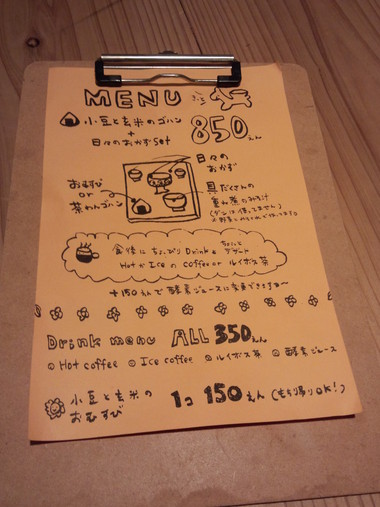 MENU
小豆と玄米のゴハン
+
日々のおかずset
850えん
日々の
おかず
おむすび
or
茶わんゴハン
具だくさんの
重ね煮のみそ汁
(ダシは使ってません)
食後にちょっぴり Drink & ちょこっとデザート
Hot か Ice の coffee or ルイボス茶
+150えんで 酵素ジュースに変更できます〜
Drink menu ALL 350えん
Hot coffee Ice coffee ルイボス茶 酵素ジュース
小豆と玄米の
おむすび
1コ 150えん (もち帰りOK!)